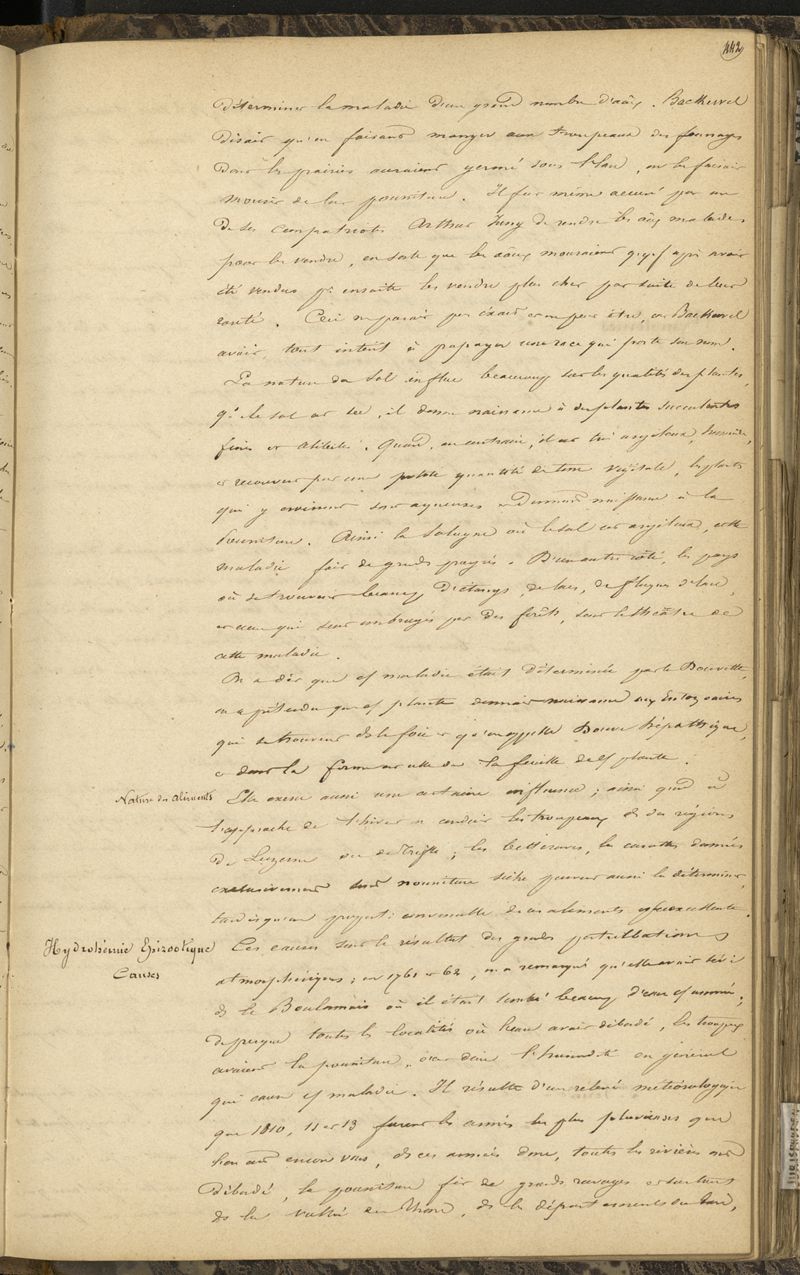 442
déterminer la maladie d'un grand nombre d'aãx. Backewel
disait qu'en faisant manger aux troupeaux des fourrages
dont les prairies auraient germé sous l'eau, on les faisait
mourir de la pourriture. Il fut même accusé par un
de ses compatriotes Arthur Jung de rendre les aãx malades
pour les vendre, en sorte que les aãx mouraient après avoir
été vendus ensuite les vendre plus cher par suite de leur
rareté. Ceci ne parait pas exact et ne peut être, car Backewel
avait tout intérêt à propager une race qui porte son nom.
La nature du sol influe beaucoup sur les qualités des plantes,
qd le sol est sec, il donne naissance à des plantes succulentes
fines et alibiles. Quand, au contraire, il est très argileux, humide,
et recouvert par une petite quantité de terre végétale, les plantes
qui y croissent sont aqueuses et donnent naissance à la
pourriture. Ainsi la Sologne où le sol est argileux, cette
maladie fait de grands progrès. D'un autre côté, les pays
où se trouvent beaucoup d'étangs, de lacs, de flaques d'eau,
et ceux qui sont ombragés par des forêts, sont le théâtre de
cette maladie.
On a dit que cette maladie était déterminée par la Douvette,
on a prétendu que cette plante donnait naissance aux entozoaires
qui se trouvent ds le foie et qu'on appelle Douve hépathique,
et dont la forme est celle de la feuille de cette plante.
Nature des aliments Elle exerce aussi une certaine influence; ainsi quand à
l'approche de l'hiver on conduit les troupeaux ds des régions
de Luzerne ou de trèfle; les betteraves, les carottes données
exclusivement sans nourriture sèche peuvent aussi la déterminer,
tandis qu'en proportion convenable ces aliments sont excellents.
Hydrohémie Epizootique Ces causes sont le résultat des grandes perturbations
Causes
atmosphériques; en 1761 et 62, on a remarqué qu'elle avait sévi
ds le Boulonnais où il était tombé beaucoup d'eau cette année.
de presque toutes les localités où l'eau avait débordé, les troupeaux
avaient la pourriture, c'est donc l'humidité en général
qui cause cette maladie. Il résulte d'un relevé météorologique
que 1810, 11 et 13 furent les années les plus pluvieuses que
l'on ait encore vues, ds ces années donc, toutes les rivières ont
débordé, la pourriture fit de grands ravages et surtout
ds la vallée du Rhône, ds les départements du Gard,